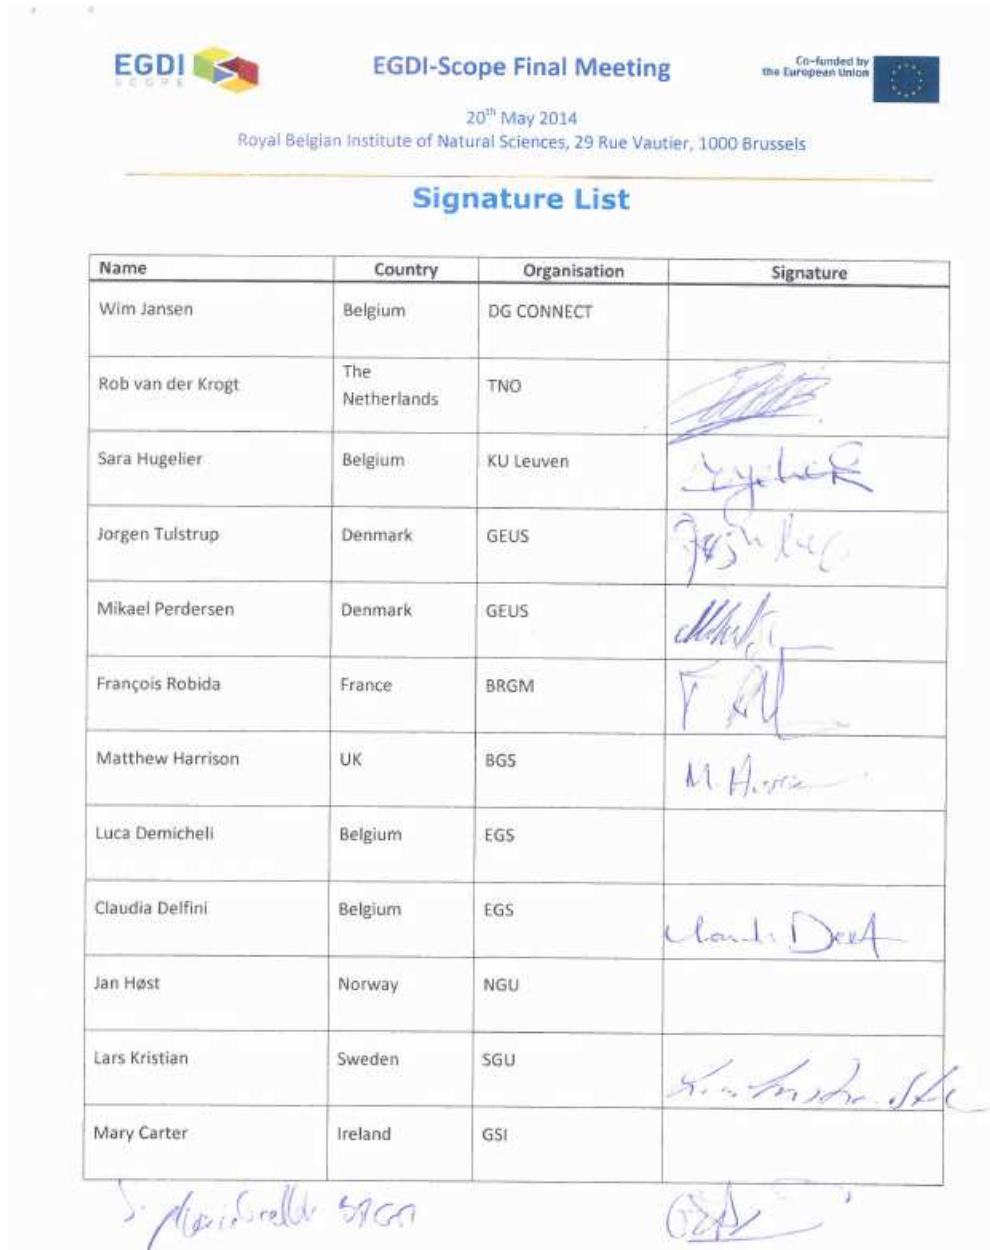 EGDI
SCOPE
EGDI-Scope Final Meeting
Co-funded by
the European Union
20th May 2014
Royal Belgian Institute of Natural Sciences, 29 Rue Vautier, 1000 Brussels
Signature List
Name Country Organisation Signature
Wim Jansen Belgium DG CONNECT
Rob van der Krogt The Netherlands TNO
Sara Hugelier Belgium KU Leuven
Jorgen Tulstrup Denmark GEUS
Mikael Perdersen Denmark GEUS
François Robida France BRGM
Matthew Harrison UK BGS M.
Luca Demicheli Belgium EGS
Claudia Delfini Belgium EGS
Jan Høst Norway NGU
Lars Kristian Sweden SGU
Mary Carter Ireland GSI